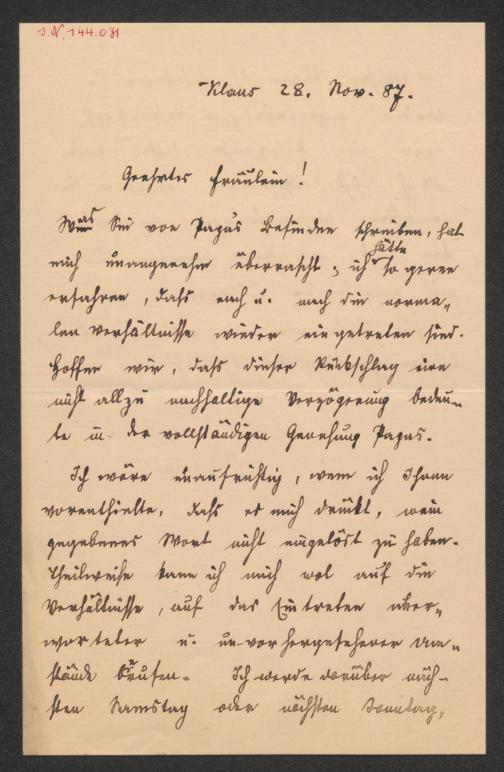 I.N. 144.031
Klaus 28. Nov. 87.
Geehrtes Fräulein!
Was Sie von Papa's Befinden schreiben, hat
mich unangenehm überrascht; ich hätte so gerne
erfahren, daß nach u. nach die norma-
len Verhältnisse wieder eingetreten sind.
Hoffen wir, daß dieser Rückschlag eine
nicht allzu nachhaltige Verzögerung bedeu-
te in der vollständigen Genesung Papas.
Ich wäre unaufrichtig, wenn ich Ihnen
vorenthielte, daß es mich drückt, mein
gegebenes Wort nicht eingelöst zu haben.
Theilweise kann ich mich wol auf die
Verhältnisse, auf das Eintreten uner-
warteter u. unvorhergesehener Um-
stände berufen. Ich werde darüber näch-
sten Samstag oder nächsten Sonntag,